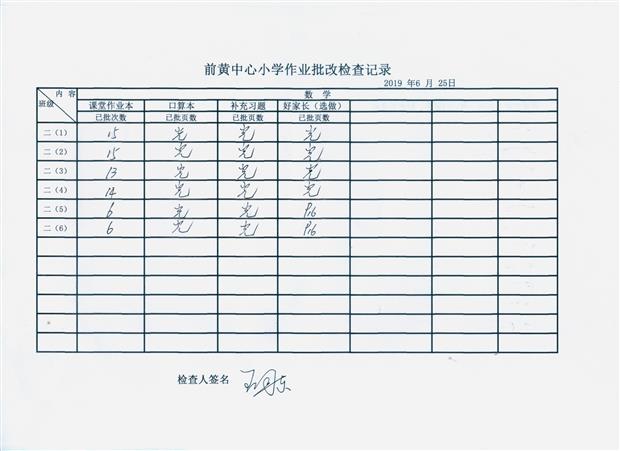 前黄中心小学作业批改检查记录
2019 年6 月 25日
内 容 数 学
班级 课堂作业本 口算本 补充习题 好家长（选做）
已批次数 已批页数 已批页数 已批页数
二（1） 15 完 完 完
二（2） 15 完 完 完
二（3） 13 完 完 完
二（4） 14 完 完 完
二（5） 6 完 完 P16
二（6） 6 完 完 P16
检查人签名